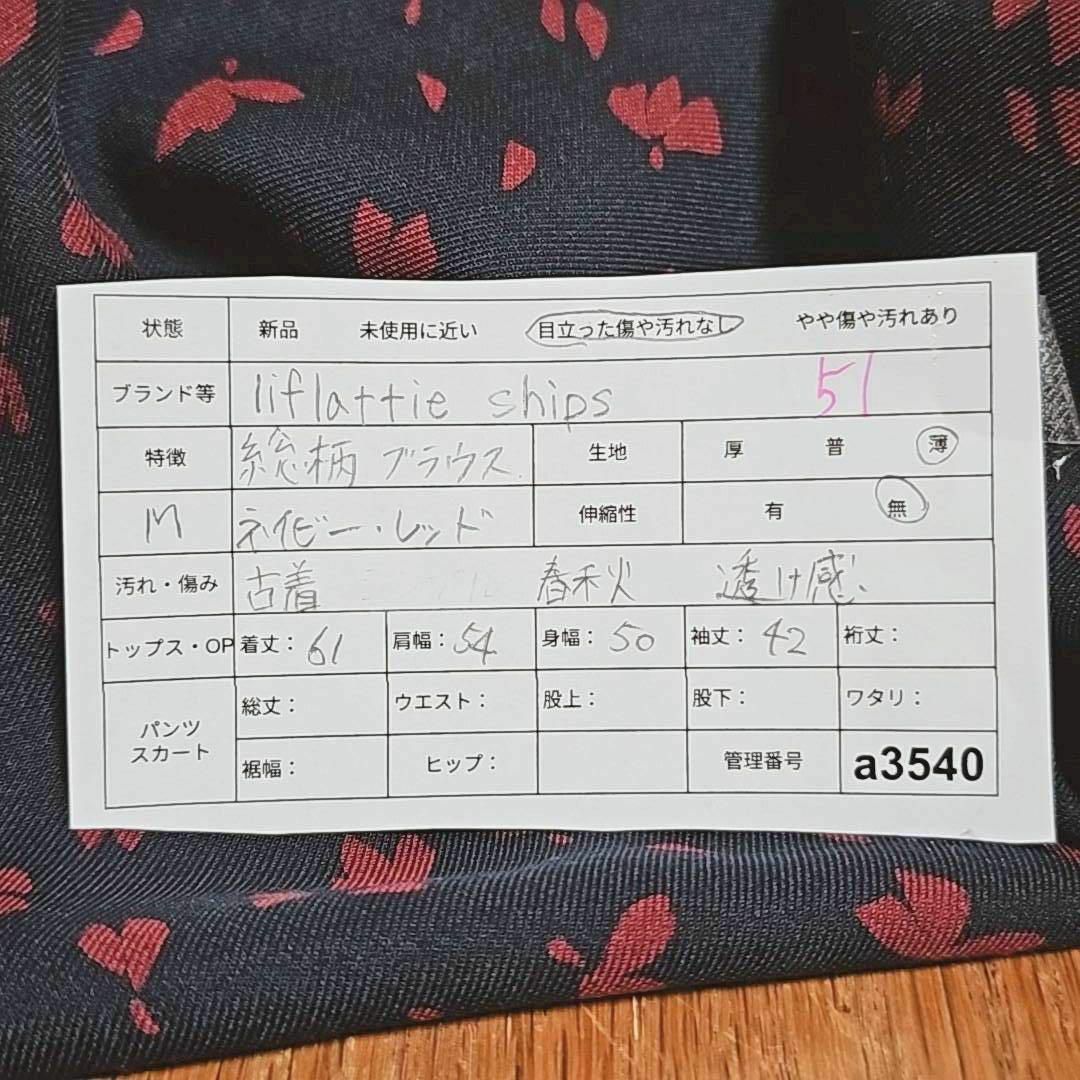 状態 新品 未使用に近い 目立った傷や汚れなし やや傷や汚れあり
ブランド等 liflattie ships 51
特徴 総柄 ブラウス 生地 厚 普 薄
M ネイビー・レッド 伸縮性 有 無
汚れ・傷み 古着 春秋 透け感
トップス・OP 着丈：61 肩幅：54 身幅：50 袖丈：42 裄丈：
パンツ スカート 総丈： ウエスト： 股上： 股下： ワタリ：
裾幅： ヒップ： 管理番号 a3540